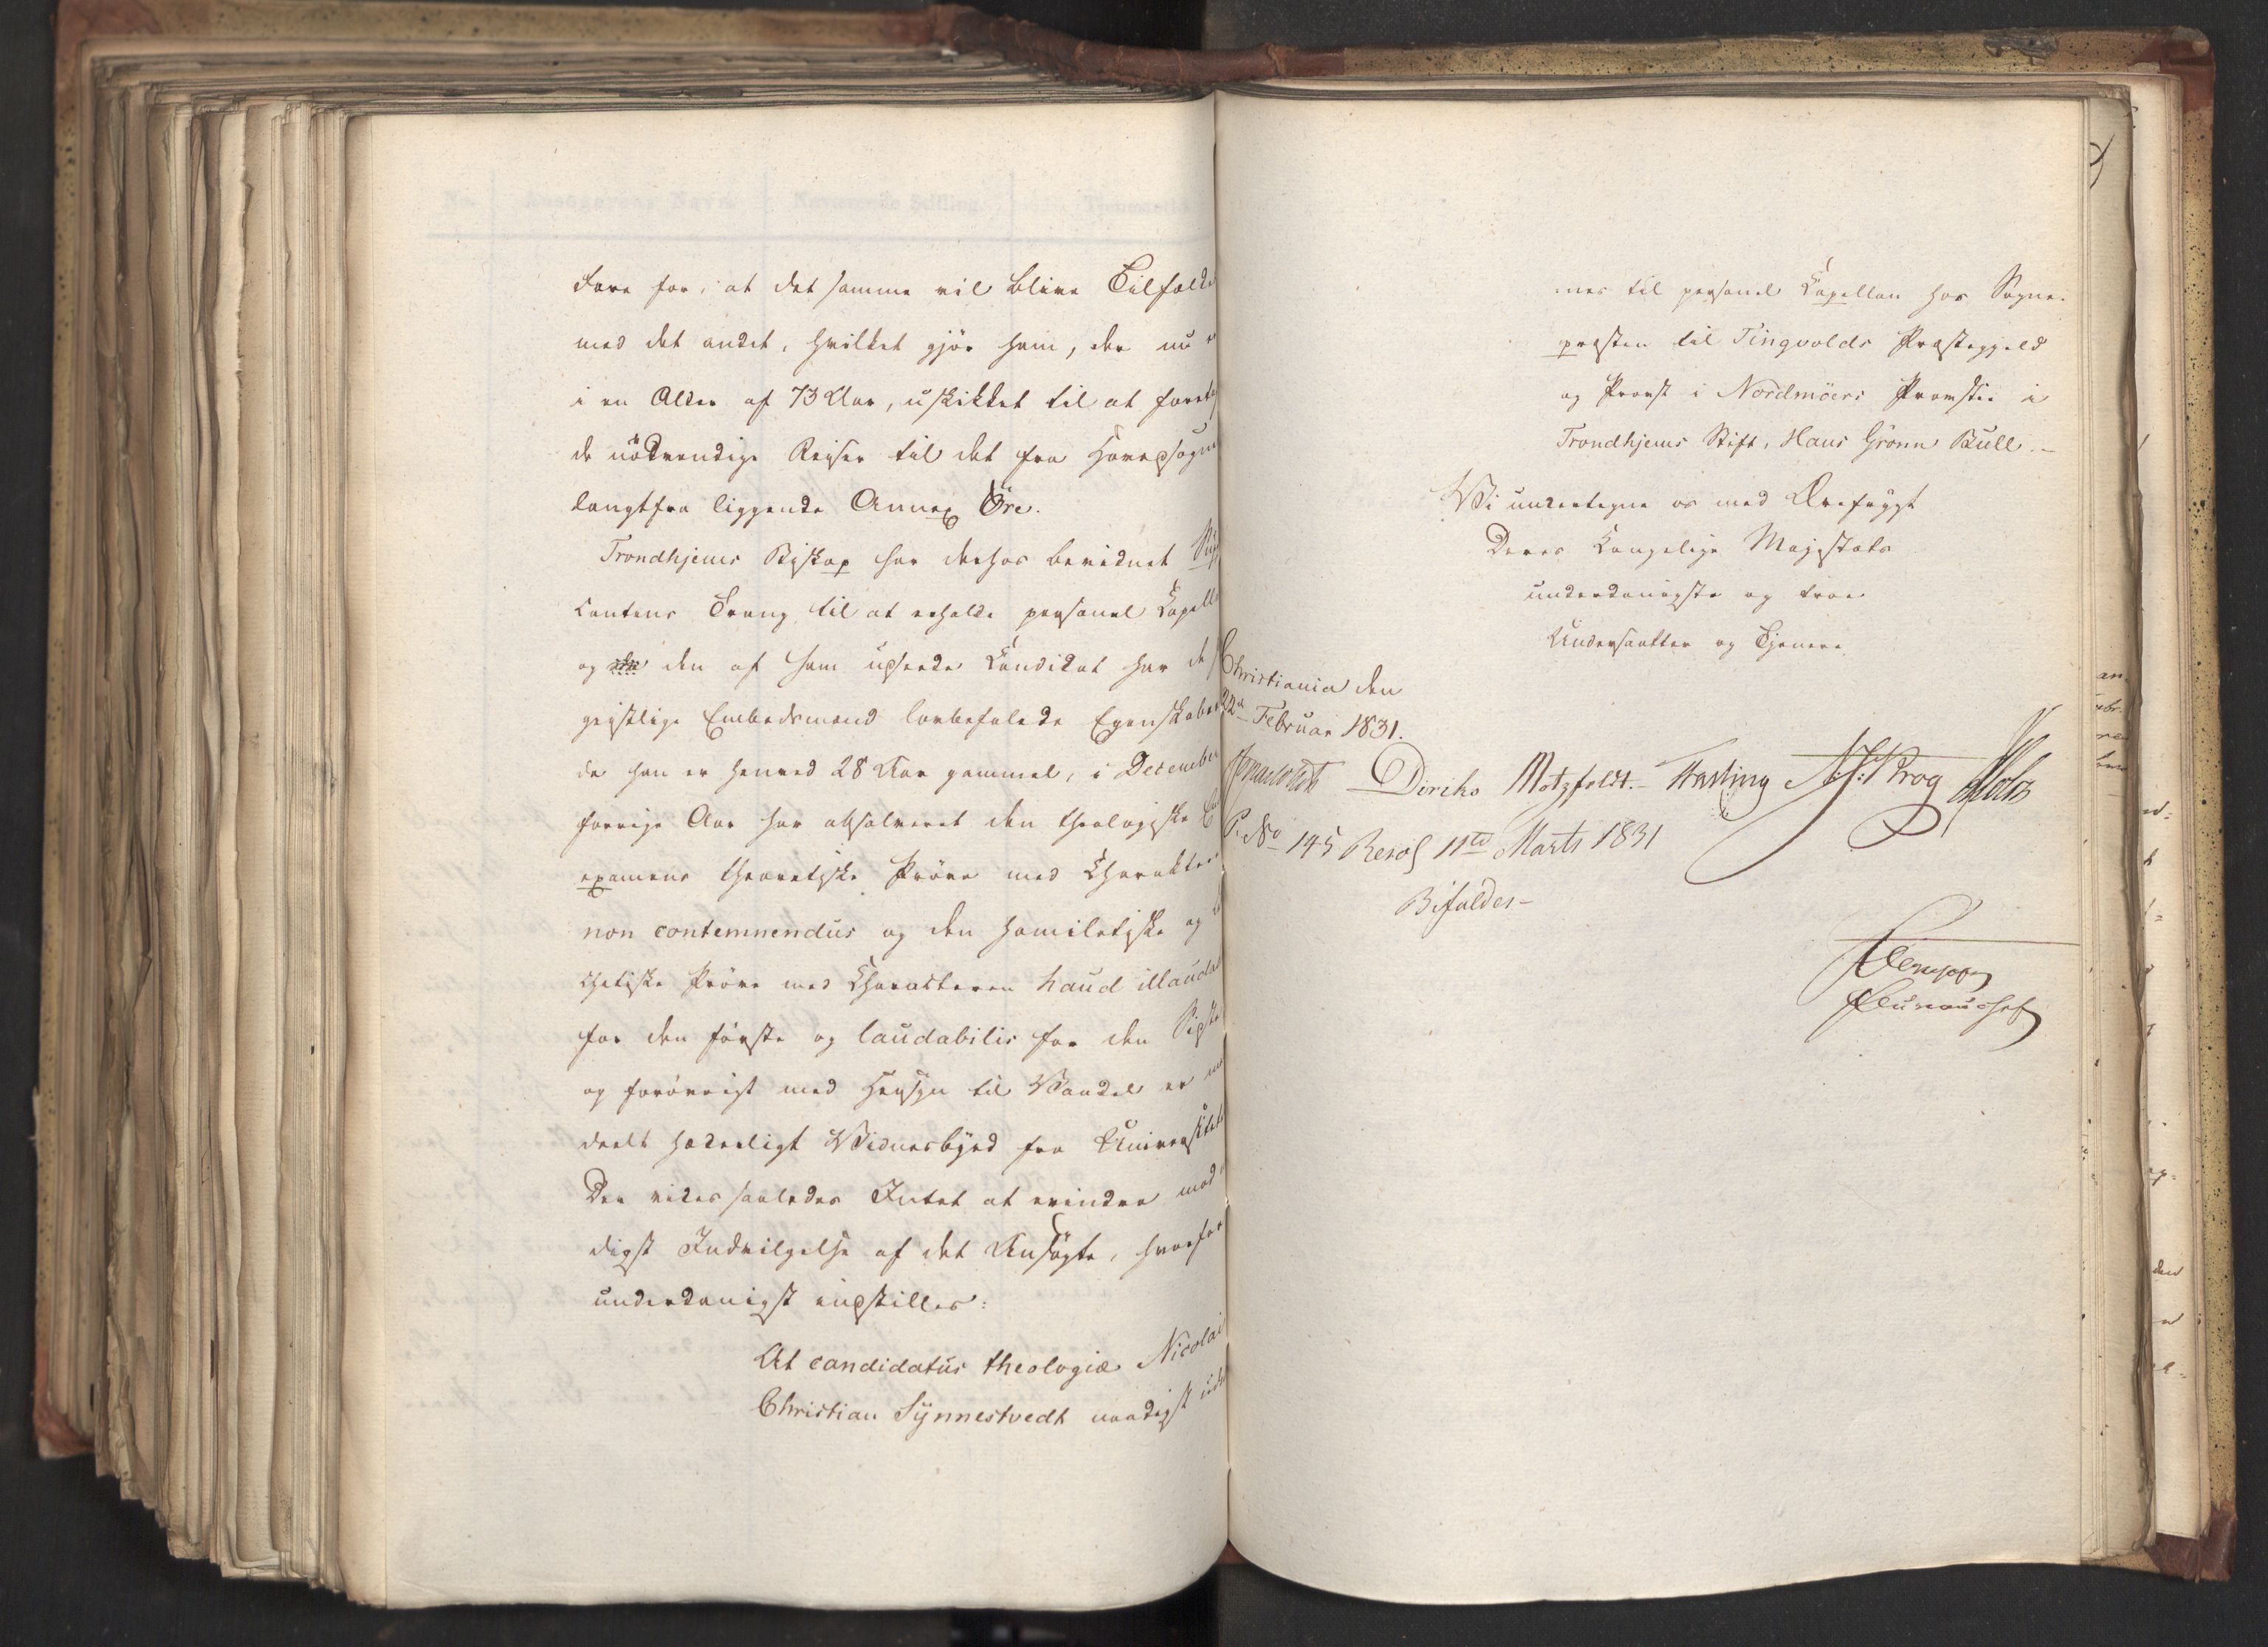 fare for, at det samme vil blive Tilfælde
med det andet, hvilket gjör ham, der nu
i en Alder af 73 Aar, uskikket til at foretag
de nödvendige Reiser til det fra Hovedsogne
langtfra liggende Annex Öre.
Trondhjems Biskop har derhos bevidnet Supp
cantens Trang til at erholde personel Capell
og den af ham udseede Candidat har de
geistlige Embedsmænd anbefalede Egenskaber
da han er henved 28 Aar gammel, i December
forrige Aar har absolveret den theologiske
examens theoretiske Pröve med Charakter
non contemnendus og den homiletiske og
chetiske Pröve med Characteren haud illauda
for den første og laudabilis for den Sidste
og forövrigt med Hensyn til Vandel er
deelt hæderligt Vidnesbyrd fra Universitet
Der vides saaledes Intet at erindre mod
digst Indvilgelse af det Ansögte, hvorfor
underdanigst indstilles:
At candidatus theologiæ Nicolai
Christian Synnestvedt naadigst ud
:nes til personel Capellan hos Sogne-
præsten til Tingvolds Præstegjeld
og Provst i Nordmöers Provstie i
Trondhjems Stift, Hans Grönn Bull.-
Vi undertegne os med Ærefrygt
Deres Kongelige Majestæts
underdanigste og troe
Undersaatter og Tjenere
Christiania den
22de Februar 1831.
Diriks Motzfeldt.- Fasting
P. No 145 Resol 11te Marts 1831
Bifaldes-